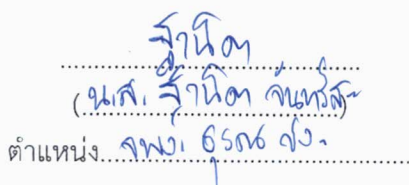 ฐานิตา
(น.ส. ฐานิตา จันทร์สิ)
ตำแหน่ง จพง. ธุรการ